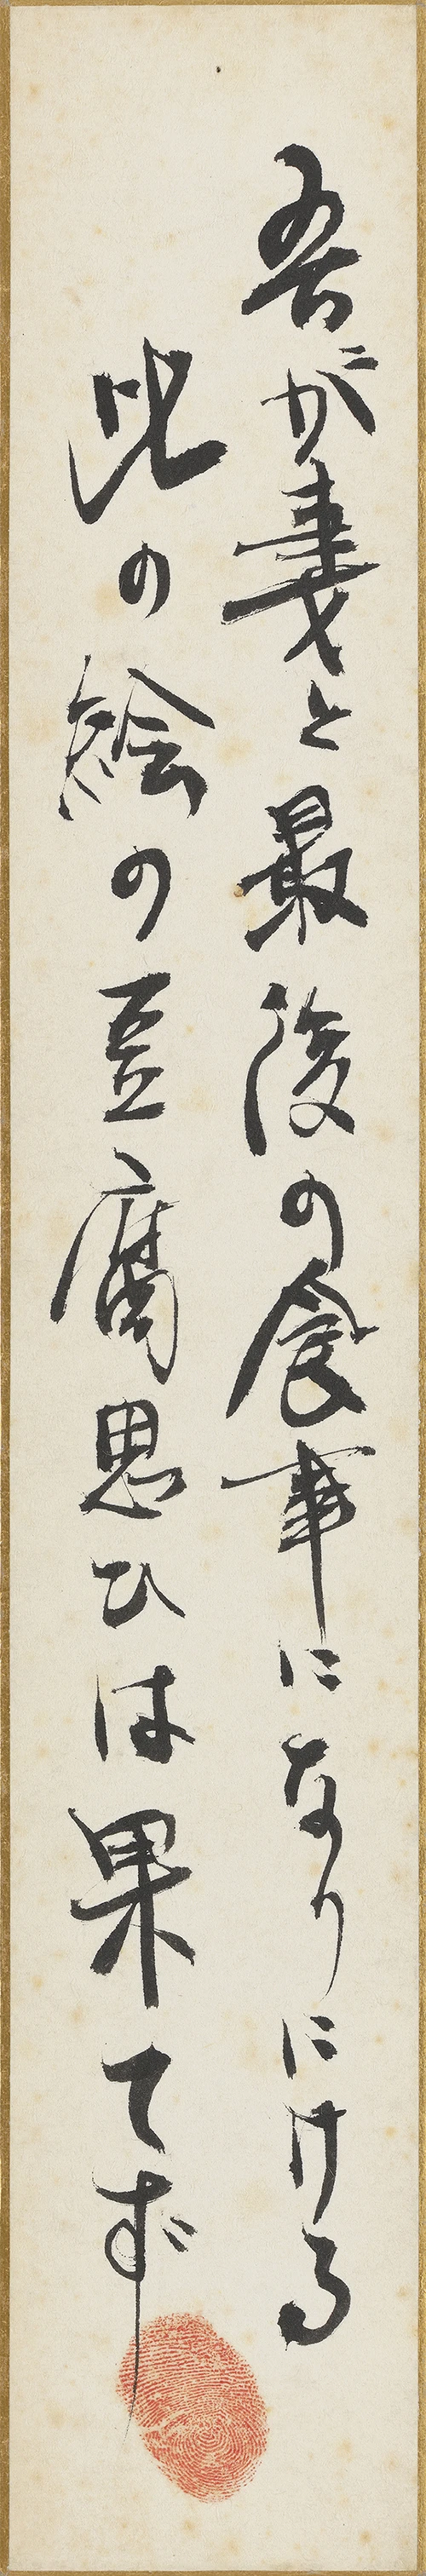 吾が妻と最後の食事になりにける
此の絵の豆腐思ひは果てず